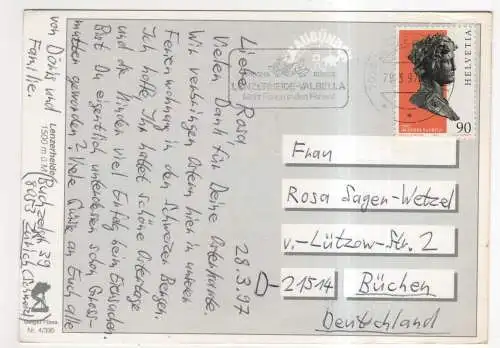 28.3.97
Liebe Rosa,
Vielen Dank für Deine Osterkarte.
Wir verbringen Ostern hier in unserer
Ferienwohnung in den Schweizer Bergen.
Ich hoffe, Ihr hattet schöne Ostertage
und die Kinder viel Erfolg beim Eiersuchen.
Bist Du eigentlich unterdessen schon Gross-
mutter geworden? Viele Grüsse an Euch alle
von Doris und
Familie.
Buchzelgstr. 39
8053 Zürich (Schweiz)
Lenzerheide
1500 m ü.M.
Nr. 4/330
GRAUBÜNDEN
LENZERHEIDE-VALBELLA
28.3.97
HELVETIA
90
Frau
Rosa Sagen-Wetzel
v.-Lützow-Str. 2
D-21514 Büchen
Deutschland